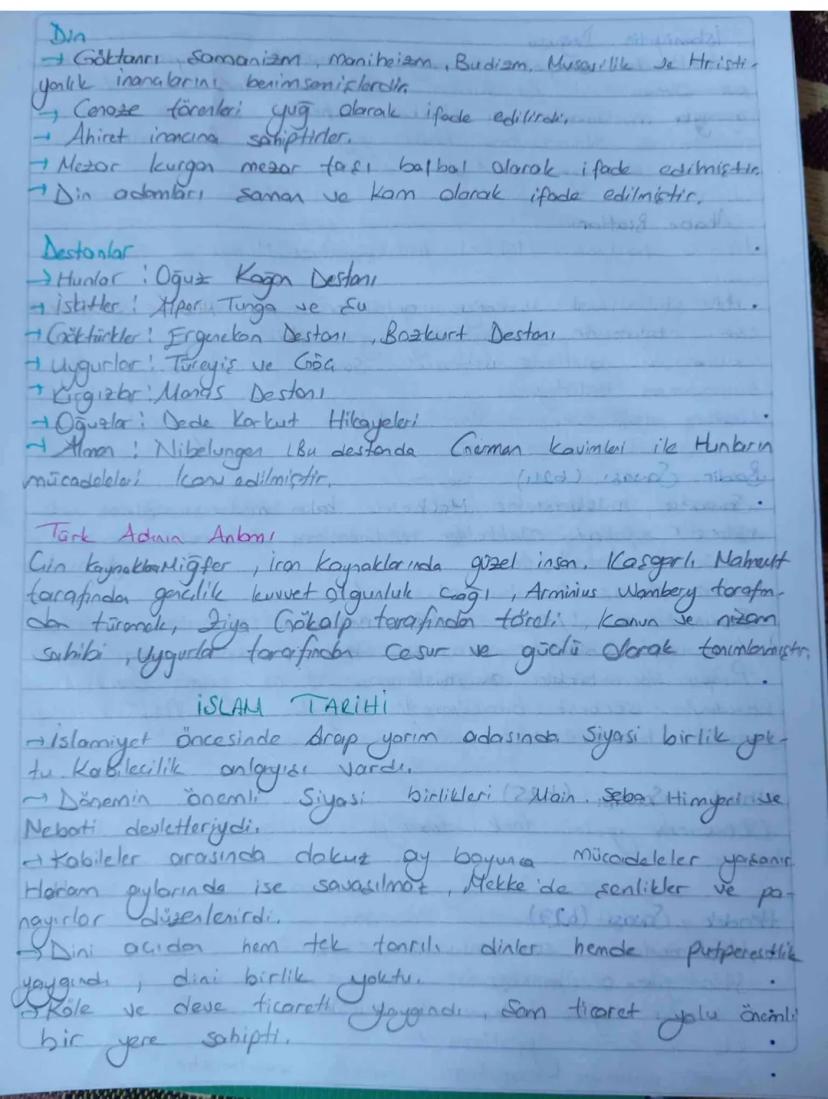 Din
→ Göktanrı, Şamanizm, maniheizm, Budizm, Musevilik ve Hristi-
yanlık inançlarını benimsemişlerdir.
→ Cenaze törenleri yuğ olarak ifade edilirdi.
→ Ahiret inancına sahiptirler.
→ Mezar kurgan mezar taşı balbal olarak ifade edilmiştir.
→ Din adamları şaman ve kam olarak ifade edilmiştir.
Destanlar
→ Hunlar : Oğuz Kağan Destanı
→ İskitler : Alper Tunga ve Şu
→ Göktürkler : Ergenekon Destanı, Bozkurt Destanı
→ Uygurlar : Türeyiş ve Göç
→ Kırgızlar : Manas Destanı
→ Oğuzlar : Dede Korkut Hikayeleri
→ Alman : Nibelungen (Bu destanda German kavimleri ile Hunların
mücadeleleri konu edilmiştir.
Türk Adının Anlamı
Çin kaynakları Miğfer, iran kaynaklarında güzel insan, Kaşgarlı Mahmut
tarafından gençlik kuvvet olgunluk çağı, Arminius Wambery tarafın-
dan türemek, Ziya Gökalp tarafından töreli, kanun ve nizam
sahibi, Uygurlar tarafından cesur ve güçlü olarak tanımlanmıştır.
İSLAM TARİHİ
→ İslamiyet öncesinde Arap yarım adasında siyasi birlik yok-
tu. Kabilecilik anlayışı vardı.
→ Dönemin önemli siyasi birlikleri Main, Seba, Himyeri ise
Nebati devletleriydi.
→ Kabileler arasında dokuz ay boyunca mücadeleler yaşanır
Haram aylarında ise savaşılmaz, Mekke'de şenlikler ve pa-
nayırlar düzenlenirdi.
→ Dini açıdan hem tek tanrılı dinler hemde putperestlik
yaygındı, dini birlik yoktu.
→ Köle ve deve ticareti yaygındı, Şam ticaret yolu önemli
bir yere sahipti.